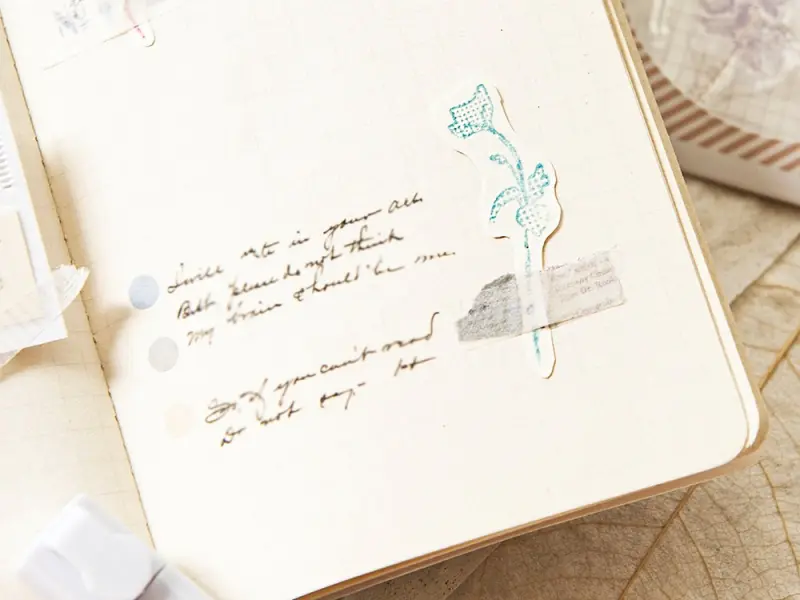 I will write in your Alb.
But please do not think
My brain should be me.
So if you can't read
Do not say